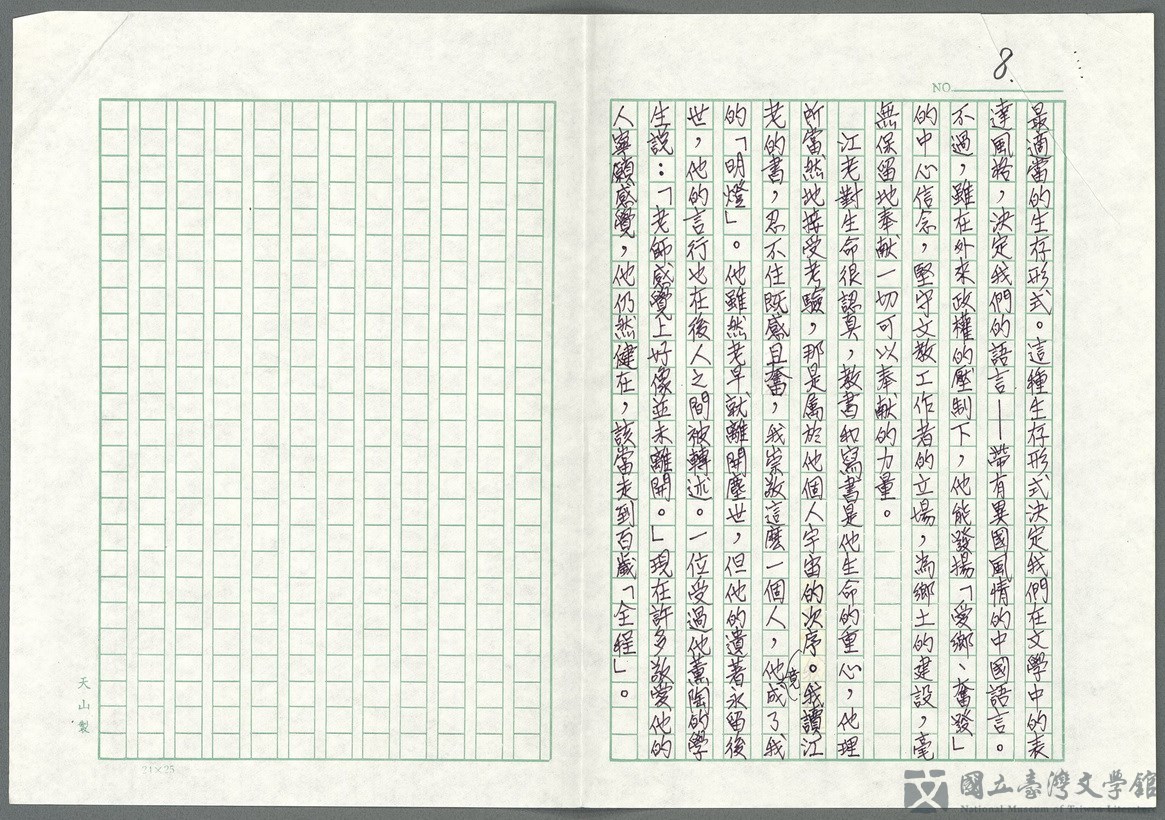 8.
NO.
最適當的生存形式。這種生存形式決定我們在文學中的表
達風格，決定我們的語言——帶有異國風情的中國語言。
不過，雖在外來政權的壓制下，他能發揚「愛鄉、奮發」
的中心信念，堅守文教工作者的立場，為鄉土的建設，毫
無保留地奉献一切可以奉献的力量。
江老對生命很認真，教書和寫書是他生命的重心，他理
所當然地接受考驗，那是屬於他個人宇宙的次序。我讀江
老的書，忍不住既感且奮，我崇敬這麼一個人，他竟成了我
的「明燈」。他雖然老早就離開塵世，但他的遺著永留後
世，他的言行也在後人之間被轉述。一位受過他薰陶的學
生說：「老師感覺上好像並未離開。」現在許多敬愛他的
人寧願感覺，他仍然健在，該當走到百歲「全程」。
天山製
21×25
國立臺灣文學館
National Museum of Taiwan Literature